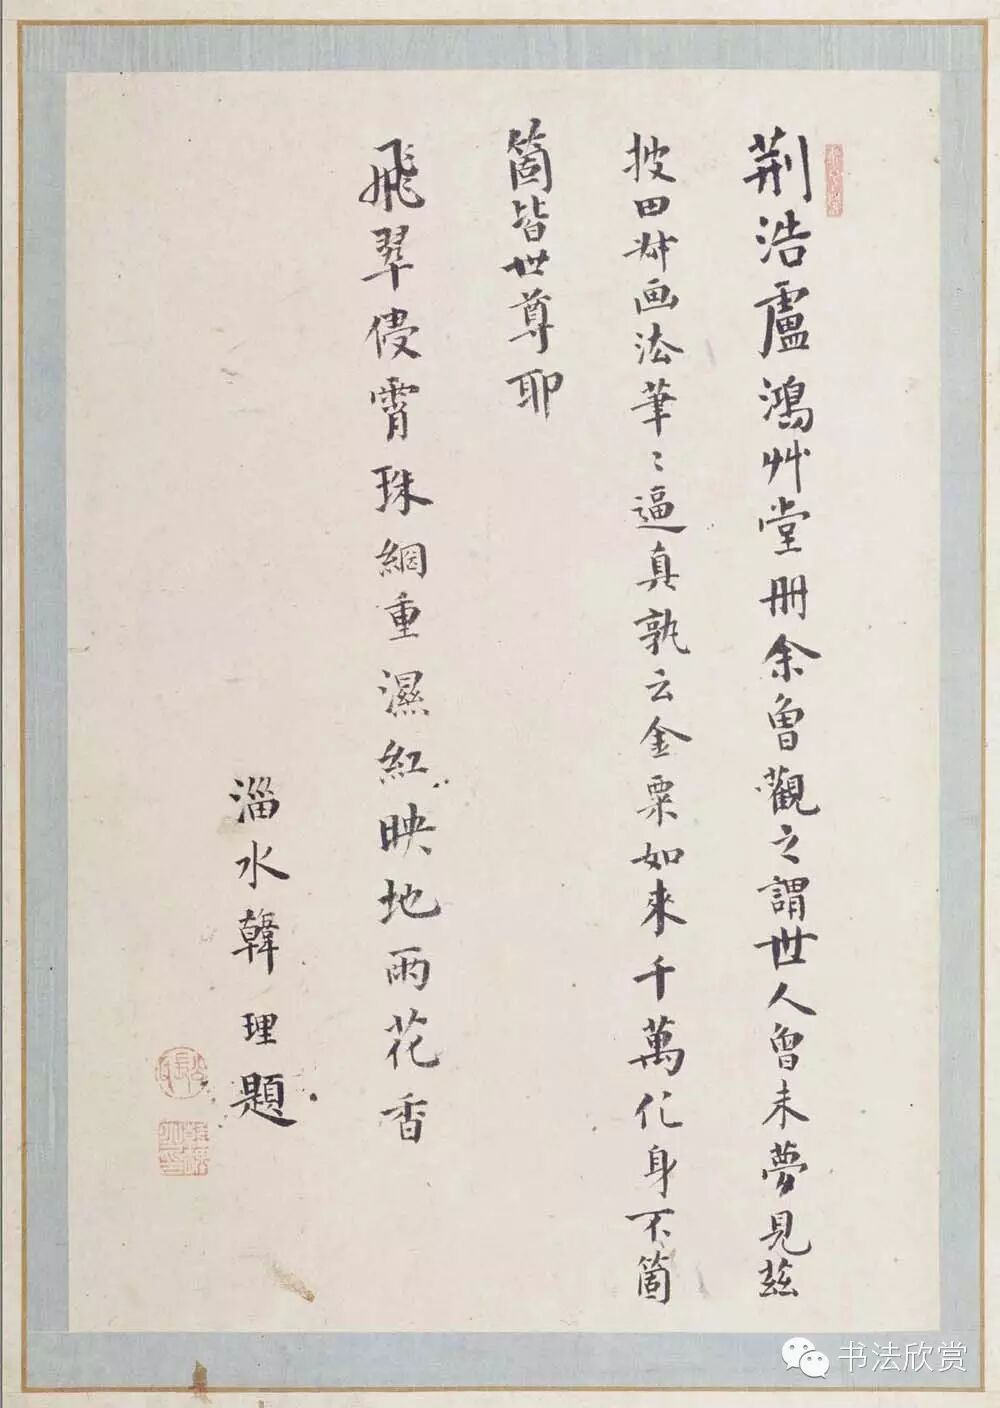 荆浩盧鴻艸堂册余曾觀之謂世人曾未夢見兹
披田叔画法筆〻逼真孰云金粟如來千萬化身不箇
箇皆世尊耶
飛翠侵霄珠網重濕紅映地雨花香
淄水韓理題
书法欣赏